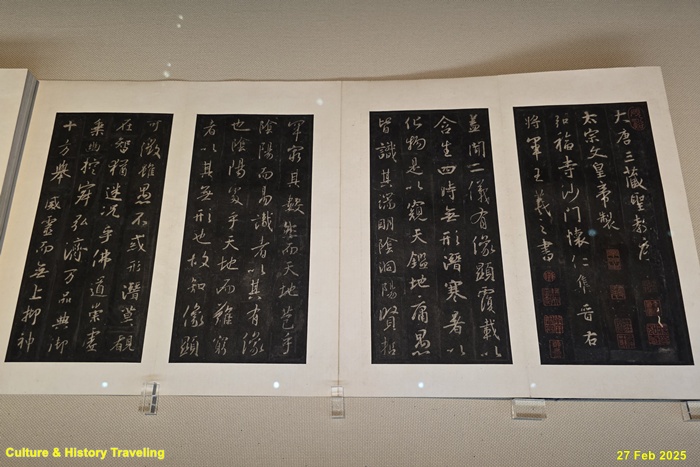 大唐三藏聖教序
太宗文皇帝製
弘福寺沙門懷仁集晉右
將軍王羲之書
蓋聞二儀有像顯覆載以
含生四時無形潛寒暑以
化物是以窺天鑑地庸愚
皆識其端明陰洞陽賢哲
罕窮其數然而天地苞乎
陰陽而易識者以其有像
也陰陽處乎天地而難窮
者以其無形也故知像顯
可徵雖愚不惑形潛莫覩
在智猶迷況乎佛道崇虛
乘幽控寂弘濟万品典御
十方舉威靈而無上抑神
Culture & History Traveling
27 Feb 2025